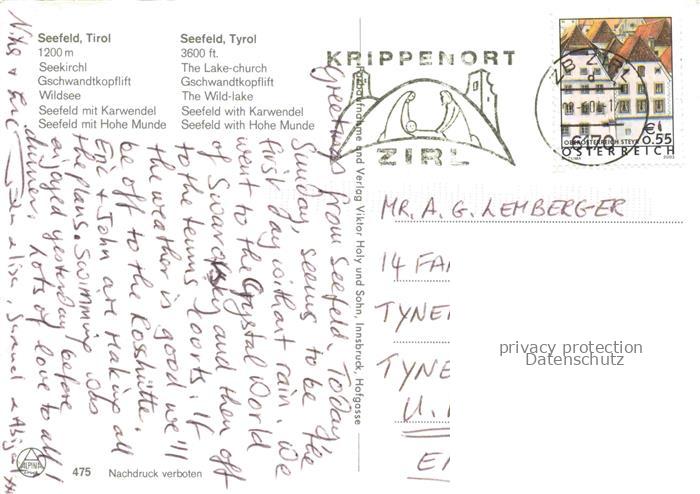 Seefeld, Tirol
1200 m
Seekirchl
Gschwandtkopflift
Wildsee
Seefeld mit Karwendel
Seefeld mit Hohe Munde
Seefeld, Tyrol
3600 ft.
The Lake-church
Gschwandtkopflift
The Wild-lake
Seefeld with Karwendel
Seefeld with Hohe Munde
Greetings from Seefeld. Today,
Sunday, seems to be the
first day without rain. We
went to the Crystal World
of Swarovsky and then off
to the tennis courts. If
the weather is good we'll
be off to the Rosshütte.
Eric & John are making all
the plans. Swimming was
enjoyed yesterday before
dinner. Lots of love to all!
John & Lisa, Samuel & Abigail xx
475 Nachdruck verboten
ALPINA
Farbaufnahme und Verlag Viktor Holy und Sohn, Innsbruck, Hofgasse
KRIPPENORT
ZIRL
ZIRL
€ 0.55
OBERÖSTERREICH STEYR
ÖSTERREICH
2003
MR. A. G. LEMBERGER
14 FA
TYNE
TYNE
U.
privacy protection
Datenschutz